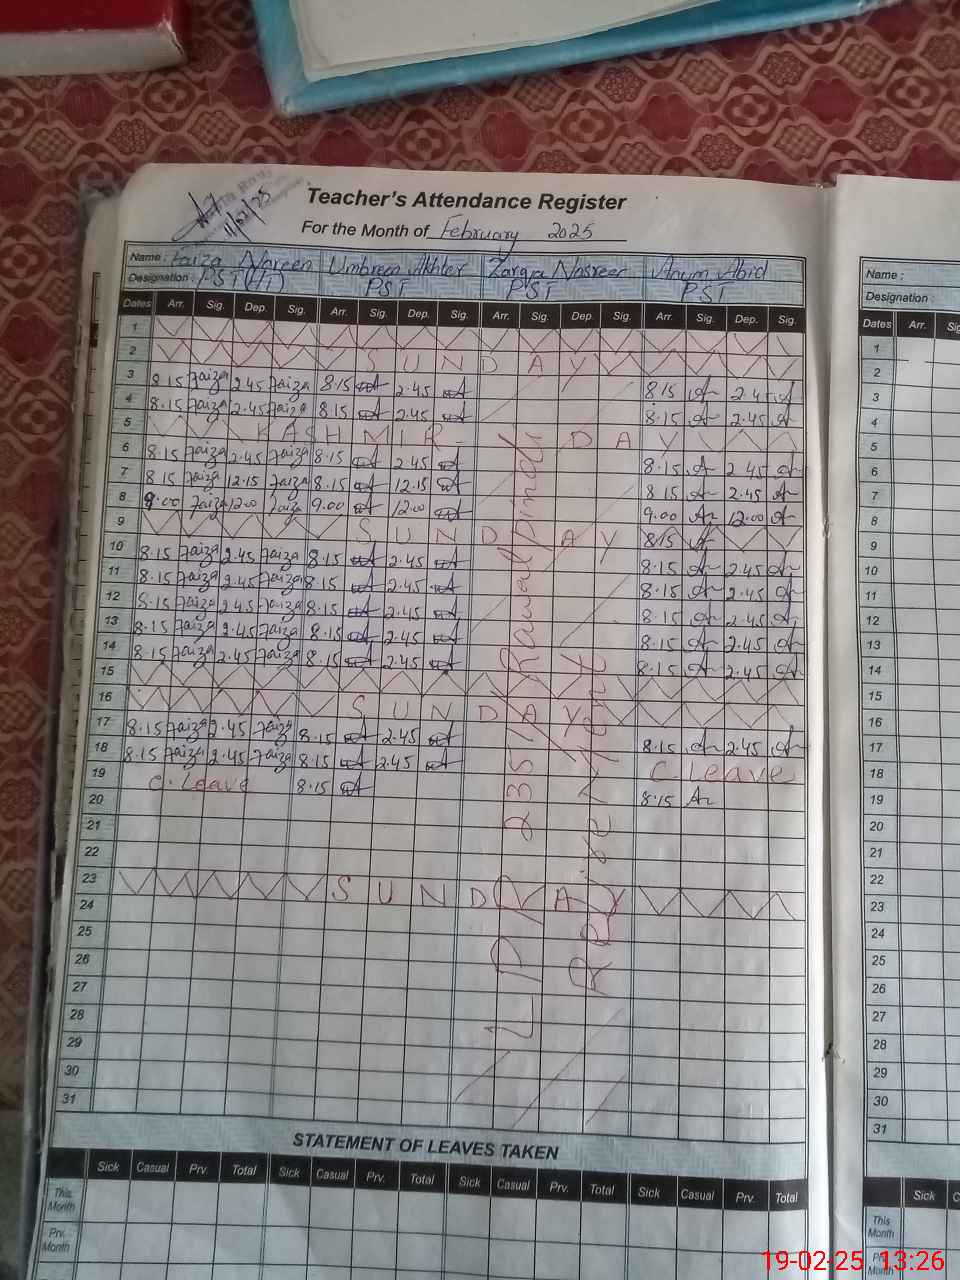 11/02/25
Teacher's Attendance Register
For the Month of February 2025
Name : Faiza Noreen Umbreen Akhter Zarqa Nasreen Anum Abid
Designation : PST (HT) PST PST PST
Dates Arr. Sig. Dep. Sig. Arr. Sig. Dep. Sig. Arr. Sig. Dep. Sig. Arr. Sig. Dep. Sig.
1
2 S U N D A Y
3 8.15 Faiza 2.45 Faiza 8.15 2.45 8.15 2.45
4 8.15 Faiza 2.45 Faiza 8.15 2.45 8.15 2.45
5 KASHMIR D A Y
6 8.15 Faiza 2.45 Faiza 8.15 2.45 8.15 2.45
7 8.15 Faiza 12.15 Faiza 8.15 12.15 8.15 2.45
8 9.00 Faiza 12.00 Faiza 9.00 12.00 9.00 12.00
9 S U N D A Y 8.15
10 8.15 Faiza 2.45 Faiza 8.15 2.45 8.15 2.45
11 8.15 Faiza 2.45 Faiza 8.15 2.45 8.15 2.45
12 8.15 Faiza 2.45 Faiza 8.15 2.45 8.15 2.45
13 8.15 Faiza 2.45 Faiza 8.15 2.45 8.15 2.45
14 8.15 Faiza 2.45 Faiza 8.15 2.45 8.15 2.45
15
16 S U N D A Y
17 8.15 Faiza 2.45 Faiza 8.15 2.45 8.15 2.45
18 8.15 Faiza 2.45 Faiza 8.15 2.45 C. Leave
19 C. Leave 8.15 8.15
20
21
22
23 S U N D A Y
24
25
26
27
28
29
30
31
LPR 235 Rawalpindi
Retirement
STATEMENT OF LEAVES TAKEN
Sick Casual Prv. Total Sick Casual Prv. Total Sick Casual Prv. Total Sick Casual Prv. Total
This Month
Prv. Month
Name :
Designation :
Dates Arr.
1
2
3
4
5
6
7
8
9
10
11
12
13
14
15
16
17
18
19
20
21
22
23
24
25
26
27
28
29
30
31
Sick
This Month
Month
19-02-25 13:26